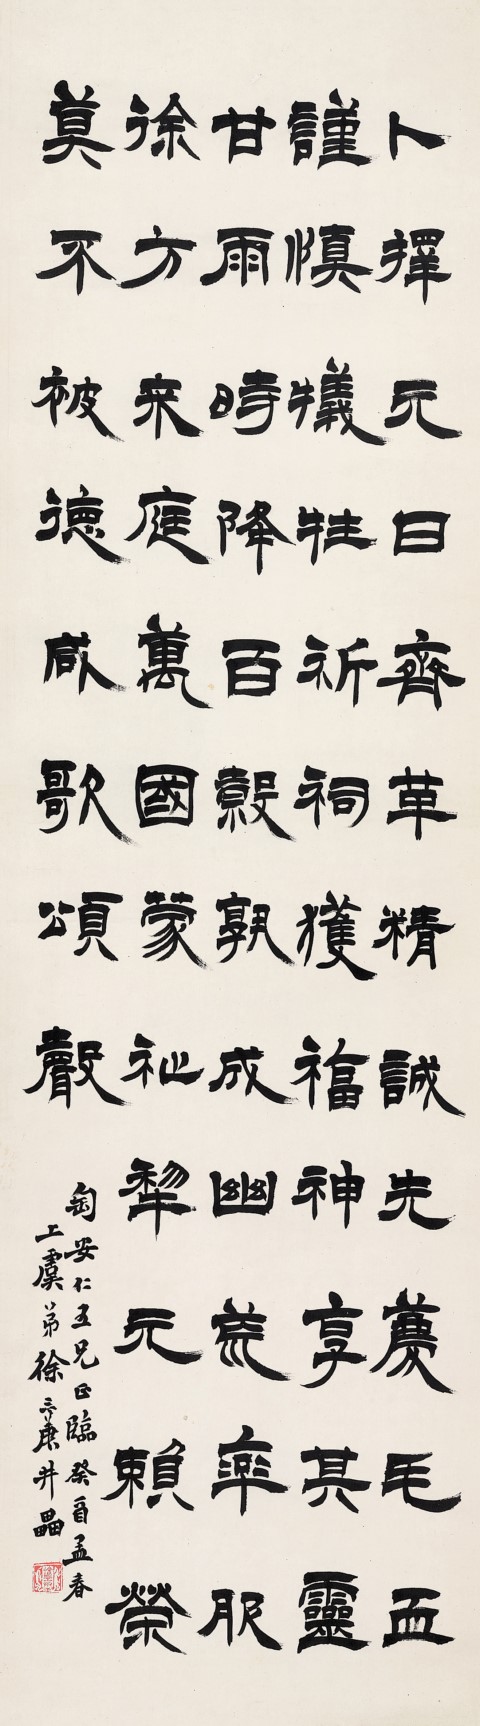 卜擇元日齊革精誠先薦毛血
謹慎犧牲祈祠獲福神享其靈
甘雨時降百穀孰成幽荒率服
徐方来庭萬國蒙祉犂元賴榮
莫不被德咸歌頌聲
匋安仁五兄正臨癸酉孟春
上虞弟徐三庚井畾